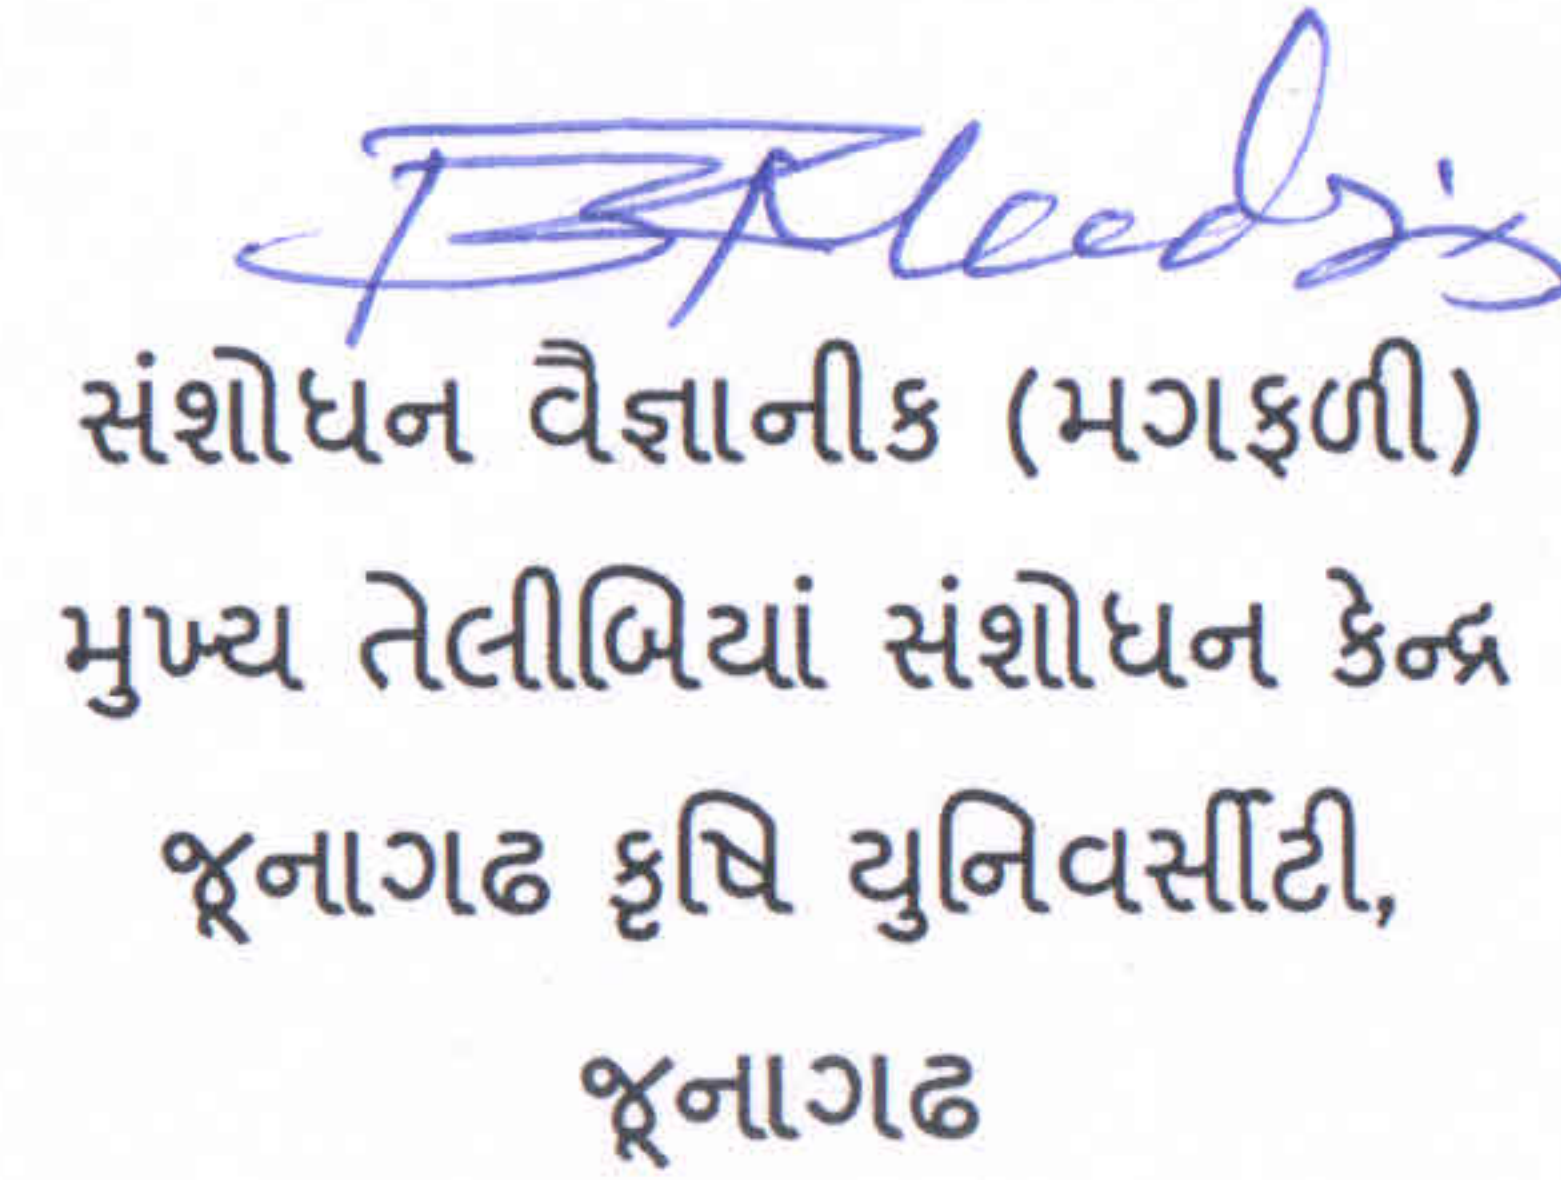 સંશોધન વૈજ્ઞાનીક (મગફળી)
મુખ્ય તેલીબિયાં સંશોધન કેન્દ્ર
જૂનાગઢ કૃષિ યુનિવર્સીટી,
જૂનાગઢ